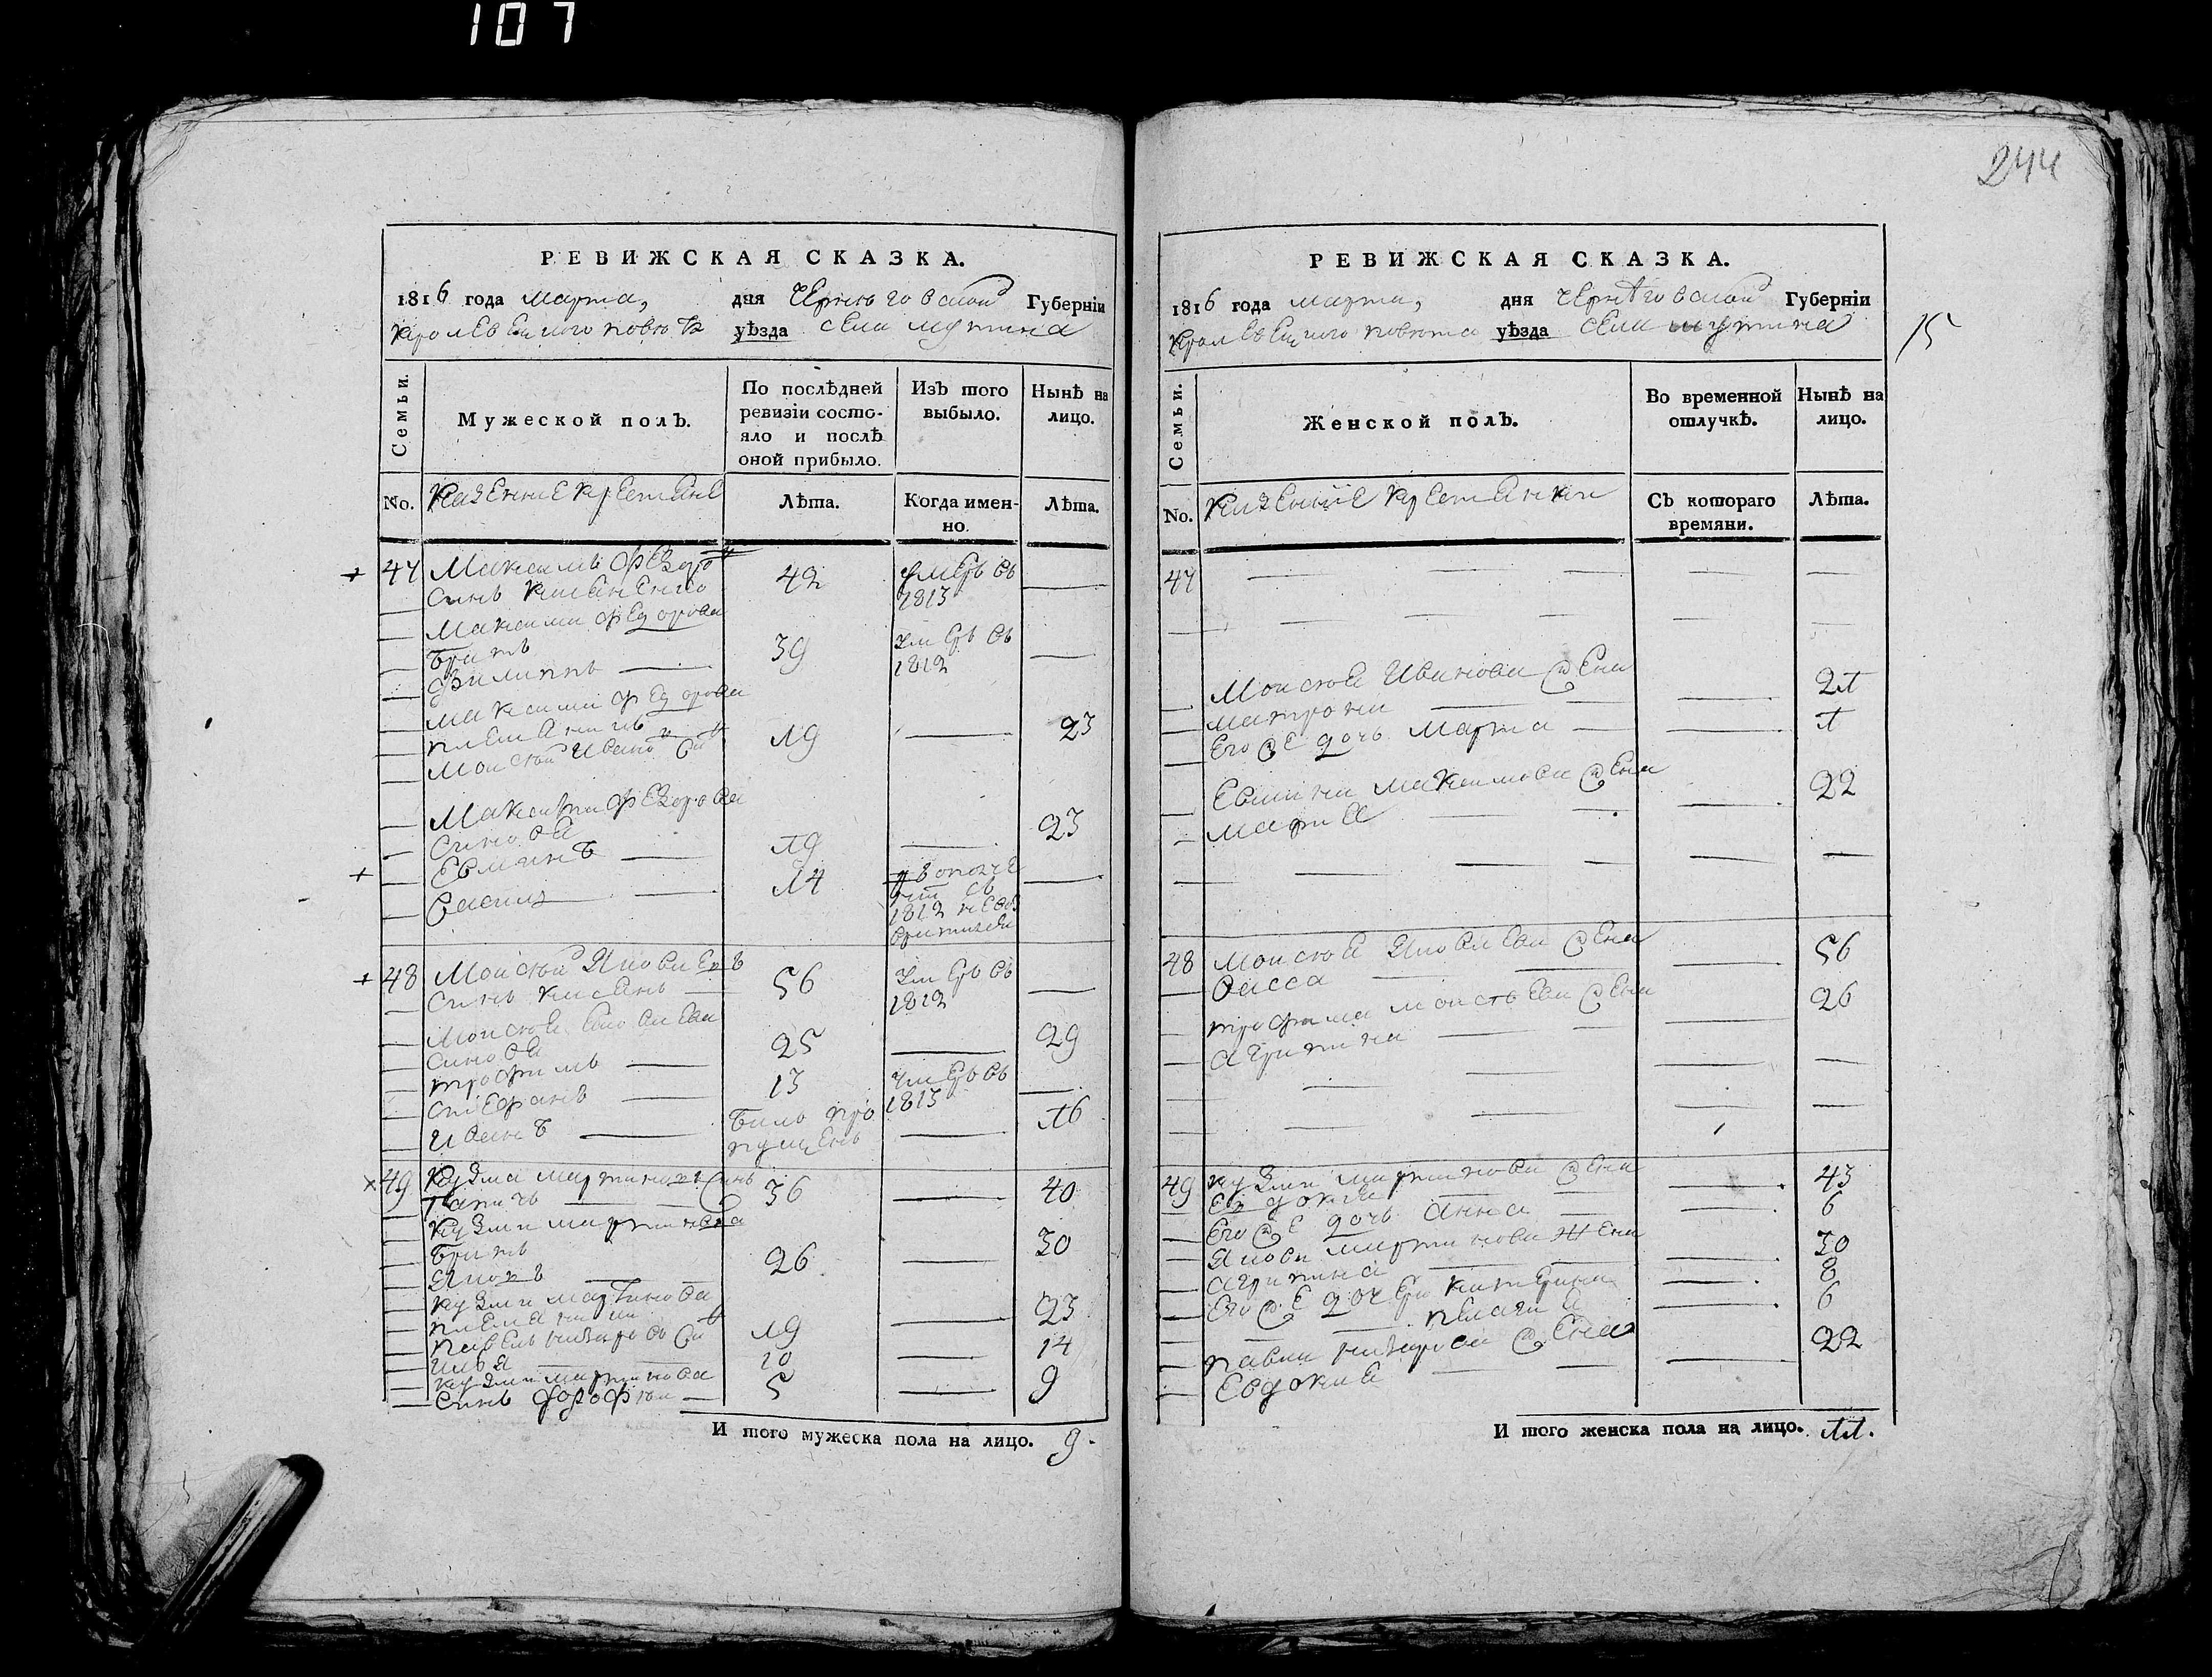 107
244
РЕВИЖСКАЯ СКАЗКА.
1816 года марта, дня Чернюговской Губерніи
уѣзда села мутина
Семьи.
Мужеской полъ.
По послѣдней ревизіи состо-
яло и послѣ
оной прибыло.
Изъ того
выбыло.
Нынѣ на
лицо.
No.
Казенние крестяне
Лѣта.
Когда имен-
но.
Лѣта.
47 Максимъ Федоро
синь 42 умеръ въ
1813
Максима Федорова
братъ
Филиппъ 39 умеръ въ
1812
Максима Федорова
племянникъ
Моисей Ивано си 19 23
Максима Федорова
синовя
Евминъ 19 23
Василь 14
1812
48 Моисей Яковлевъ
синь 56 умеръ въ
1812
Моисея Яковлева
синовя
трофимъ 25 29
стефанъ 13 умеръ въ
1813
Иванъ било про
пущенъ 16
49 Кузма мартиновъ синъ
36 40
Кузми мартинова
братъ
Яковъ 26 30
Кузми мартинова
племянники
Павелъ назаровъ си 19 23
илья 10 14
Кузми мартинова
синъ 5 9
И того мужеска пола на лицо. 9.
РЕВИЖСКАЯ СКАЗКА.
1816 года марта, дня Чернѣговской Губерніи
повюта уѣзда села мутина
15
Семьи.
Женской полъ.
Во временной
отлучкѣ.
Нынѣ на
лицо.
No.
Казенніе крестянки
Съ котораго
времяни.
Лѣта.
47
Моисея Иванова жена
матрона 21
Его же дочь марта 1
Евмина Максимова жена
мария 22
48 Моисея Яковлева жена
васса 56
трофима моисѣева жена
агрипина 26
49 Кузми мартинова жена
Евдокия 43
Его же дочь анна 6
Якова мартинова жена
агрипина 30
Его же дочери катерина 8
пелагия 6
павла назарова жена
Евдокия 22
И того женска пола на лицо. 11.